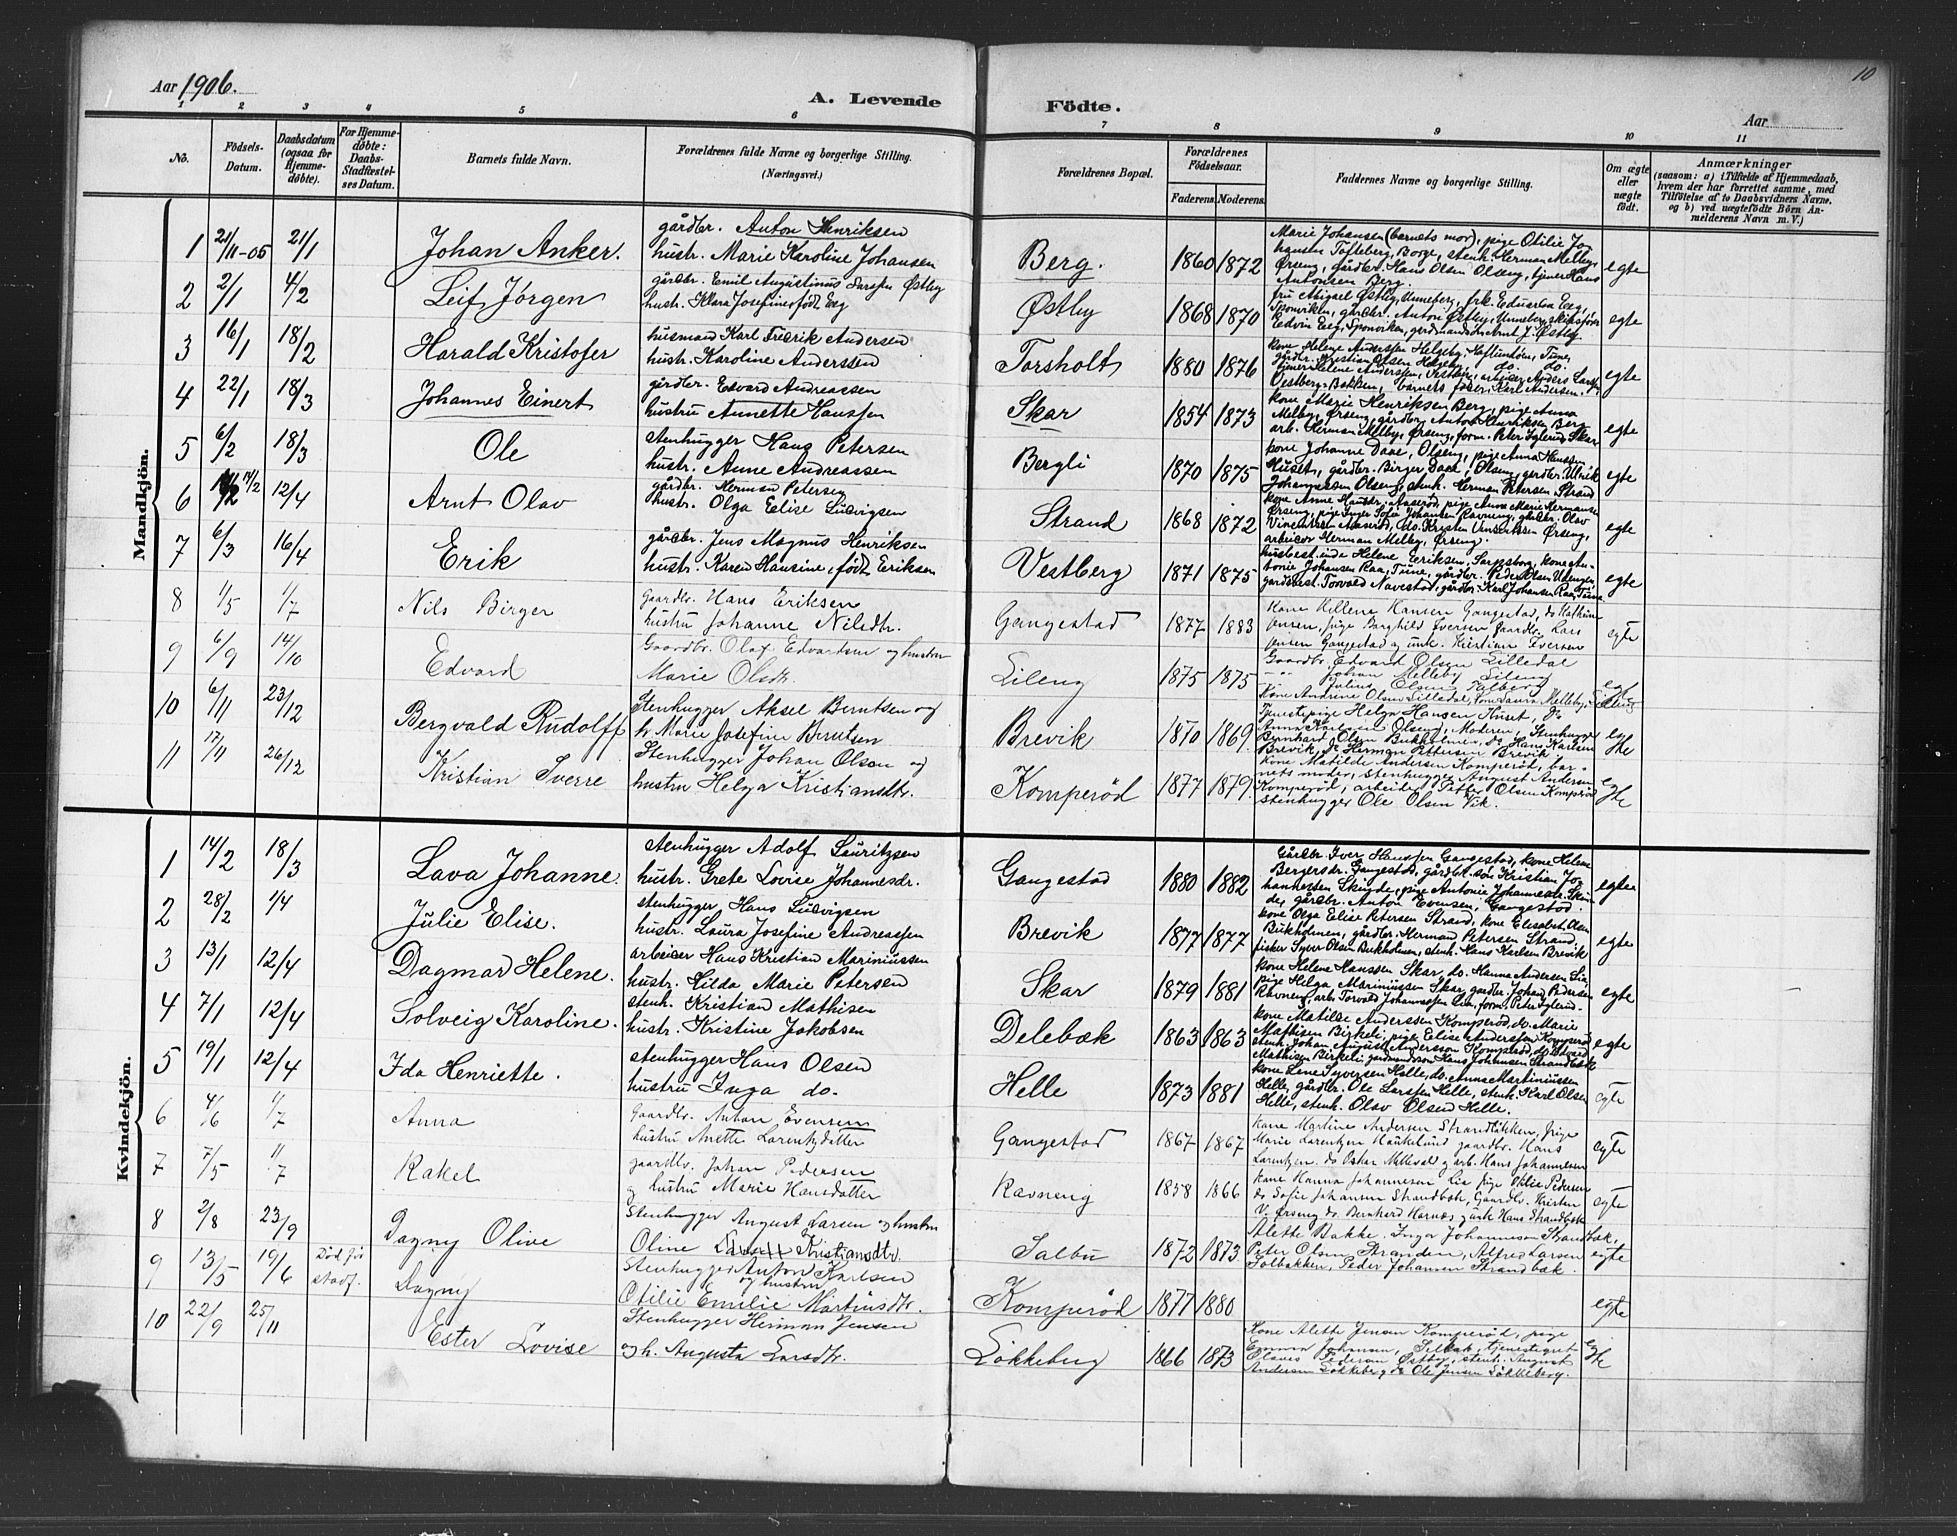 Aar 1906.
A. Levende Födte.
Aar
10
1 2 3 4 5 6 7 8 9 10 11
No.
Födsels-Datum.
Daabsdatum (ogsaa for Hjemme-döbte).
For Hjemme-döbte: Daabs-Stadfæstel-ses Datum.
Barnets fulde Navn.
Forældrenes fulde Navne og borgerlige Stilling. (Næringsvei.)
Forældrenes Bopæl.
Forældrenes Födselsaar.
Faderens. Moderens.
Faddernes Navne og borgerlige Stilling.
Om ægte eller uægte födt.
Anmærkninger
(saasom: a) i Tilfælde af Hjemmedaab, hvem der har forrettet samme, med Tilföielse af to Daabsvidners Navne. og b) ved uægtefödte Börn An-melderens Navn m. V.)
Mandkjön.
1 21/11-05 21/1 Johan Anker. gårdbr. Anton Henriksen
hustr. Marie Karoline Johansen Berg. 1860 1872 egte
Marie Johansen (barnets mor), pige Otilie Jo-
hansen Tofteberg, Borge, stenh. Herman Melby,
Ørseng, gårdbr. Hans Olsen Olseng, tjener Hans
Antonsen Berg.
2 2/1 4/2 Leif Jørgen gårdbr. Emil Augustinus Larssen Østby
hustr. Klara Josefine, født Eeg Østby 1868 1870 egte
fru Abigael Østby, Unneberg, frk. Eduarda Eeg,
Sponviken, gårdbr. Anton Østby, Unneberg, skipsfører
Edvin Eeg, Sponviken, gårdmandssøn Arnt J. Østby.
3 16/1 18/2 Harald Kristofer husmand Karl Fredrik Andersen
hustr. Karoline Anderssen Torsholt 1880 1876 egte
kone Helene Anderssen Helgeby, Haftuntøen, Tune,
gårdbr. Kristian Olsen Helgeby do. do.
tjener Helene Anderssen, Vestberg, arbeider Anders Larsen,
Vestberg-Bakken, barnets fader, Karl Andersen.
4 22/1 18/3 Johannes Einert gårdbr. Edvard Andreassen
hustru Annette Hanssen Skar 1854 1873 egte
kone Marie Henriksen Berg, pige Anna
Melby, Ørseng, gårdbr. Anton Henriksen Berg
arb. Herman Melby, Ørseng, form. Peter Iglerød Skar
5 6/2 18/3 Ole stenhugger Hans Petersen
hustr. Anne Andreassen Bergli 1870 1875 egte
kone Johanne Daae, Olseng, pige Anna Hanssen
Huset, gårdbr. Birger Daae, Olseng, gårdbr. Ulrik
Johannessen Olseng, stenh. Herman Petersen Strand
6 14/2 12/4 Arnt Olav gårdbr. Herman Petersen
hustr. Olga Elise Ludvigsen Strand 1868 1872 egte
Ørseng, pige Inger Sofie Johansen Ravneng, gårdbr. Olav
Vincentsen Aaserød, do. Kristen Vincentsen Ørseng,
arbeider Herman Melby, Ørseng.
7 6/3 16/4 Erik gårdbr. Jens Magnus Henriksen
hustr. Karen Hansine, født Eriksen Vestberg 1871 1875 egte
husbest.inde Helene Eeriksen, Sarpsborg, kone An-
tonie Johansen Raa, Tune, gårdbr. Peder Olsen Utengen
gårdbest. Torvald Navestad, gårdbr. Karl Johansen Raa, Tune
8 1/5 1/7 Nils Birger Gaardbr. Hans Eriksen
hustru Johanne Nilsdtr. Gangestad 1877 1883 egte
Kone Hellene Hansen Gangestad, do Kathrine
Jensen, pige Borghild Iversen Gaardbr. Lars
Jensen Gangestad og unk. Kristian Iversen
9 6/9 14/10 Edvard Gaardbr. Olaf Edvardsen og hustru
Marie Olsdtr. Lileng 1875 1875 egte
Gaardbr. Edvard Olsen Lilledal
-"- Johan Melleby Lileng
-"- Julius Olsen Talberg
Kone Andrine Olsen Lilledal, Kone Laura Melleby, Lilleng
10 6/11 23/12 Bergvald Rudolff Stenhugger Aksel Berntsen og
h. Marie Josefine Berntsen Brevik 1870 1869. egte
Tjenestepige Helga Hansen Huset, do
Anna Karlsen Olseng, Moderen, Stenhugger
Bernhard Olsen Bukholmen, do Hans Karlsen
Brevik, do Herman Pettersen Brevik
11 17/11 26/12 Kristian Sverre Stenhugger Johan Olsen og
hustru Helga Kristiansdtr. Komperød 1877 1879. egte
Kone Matilde Andersen Komperød, bar-
nets moder, stenhugger August Andersen
Komperød, arbeider Petter Olsen Komperød
stenhugger Ole Olsen Vik.
Kvindekjön.
1 14/2 18/3 Lava Johanne. stenhugger Adolf Lauritzsen
hustr. Grete Lovise Johannesdr. Gangestad 1880 1882 egte
Gårdbr. Iver Hanssen Gangestad, kone Helene
Bergersdr. Gangestad, gårdbr.søn Kristian Jo-
hannessen Skinde, pige Antonie Johannesdr. Skin-
de, gårdbr. Anton Evensen, Gangestad.
2 28/2 1/4 Julie Elise. stenhugger Hans Ludvigsen
hustr. Laura Josefine Andreassen Brevik 1877 1877 egte
kone Olga Elise Petersen Strand, kone Elisabet Olsen
Bukholmen, gårdbr. Herman Petersen Strand,
fisker Syver Olsen Bukholmen, stenh. Hans Karlsen Brevik
3 13/1 12/4 Dagmar Helene. arbeider Hans Kristian Mariniussen
hustr. Hilda Marie Petersen Skar 1879 1881 egte
kone Helene Hanssen Skar, do. Hanna Andersen Lia,
pige Helga Mariniussen Skar, gårdbr. Johan Pedersen
Ravneng, arb. Torvald Johannessen Lia, form. Peter Iglerød.
4 7/1 12/4 Solveig Karoline. stenh. Kristian Mathisen
hustr. Kristine Jakobsen Delebæk 1863 1863 egte
kone Matilde Anderssen Komperød, do. Marie
Mathisen Birkeli, pige Elise Anderssen Komperød
stenh. Johan August Andersson Komperød, do. Edvard
Mathisen Birkeli, gårdmandssøn Hans Johansen Strandbæk
5 19/1 12/4 Ida Henriette. stenhugger Hans Olsen
hustru Inga do. Helle 1873 1881 egte
kone Lene Syversen Helle, do. Anna Martiniussen
Helle, gårdbr. Ole Larssen Helle, stenh. Karl Olsen
Helle, stenh. Olav Olsen Helle.
6 4/6 1/7 Anna Gaardbr. Anton Evensen
hustru Anette Larentzdatter Gangestad 1867 1867 egte
Kone Martine Andersen Strandløkken, pige
Marie Larentzen Haukelund gaardbr. Hans
Larentzen. do Oskar Mellevold og arb. Hans Johannesen
7 7/5 1/7 Rakel gaardbr. Johan Pedersen
og hustru Marie Hansdatter Ravneng 1858 1866 egte
Kone Hanna Johannesen Lia Pige Otilie Pedersen
do Sofie Johansen Strandbæk, Gaardbr. Kristen
V. Ørseng do. Bernhard Hornæs og unk Hans Strandbæk
8 2/8 23/9 Dagny Olive Stenhugger August Larsen og hustru
Oline Kristiansdtr. Salbu 1872 1873 egte
Alette Bakke. Inga Johannesen Strandbæk,
Peter Olsen Stranden, Alfred Larsen
Solbakken, Peder Johansen Strandbæk.
9 13/5 19/6 Død før stadf. Dagny Stenhugger Anton Karlsen
og hustru
Otilie Emilie Martinsdtr. Komperød 1877 1880 egte
10 22/9 25/11 Ester Lovise Stenhugger Herman Jensen
og h. Augusta Larsdtr. Løkkeberg 1866 1873 egte
Kone Alette Jensen Komperød, pige
Emma Johansen, Silbæk, tjenestegut
Olaves Pedersen Østby, stenh. August
Andersen Løkkeberg do Ole Jensen Løkkeberg.